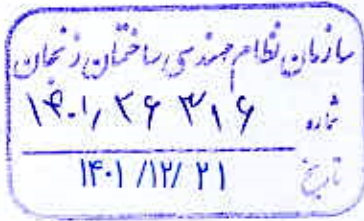 سازمان نظام مهندسی ساختمان زنجان
شماره ۱۴۰۱/۲۶۳۱۶
تاریخ ۱۴۰۱/۱۲/۲۱